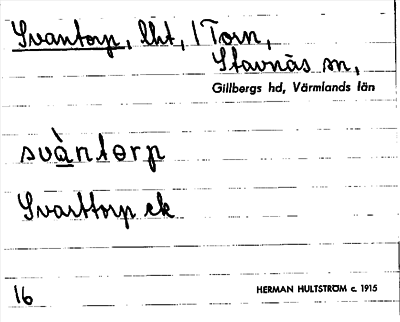 Svantorp, lht, i Torn,
Stavnäs sn,
Gillbergs hd, Värmlands län
svàntɵrp
Svarttorp ek
16
HERMAN HULTSTRÖM c. 1915